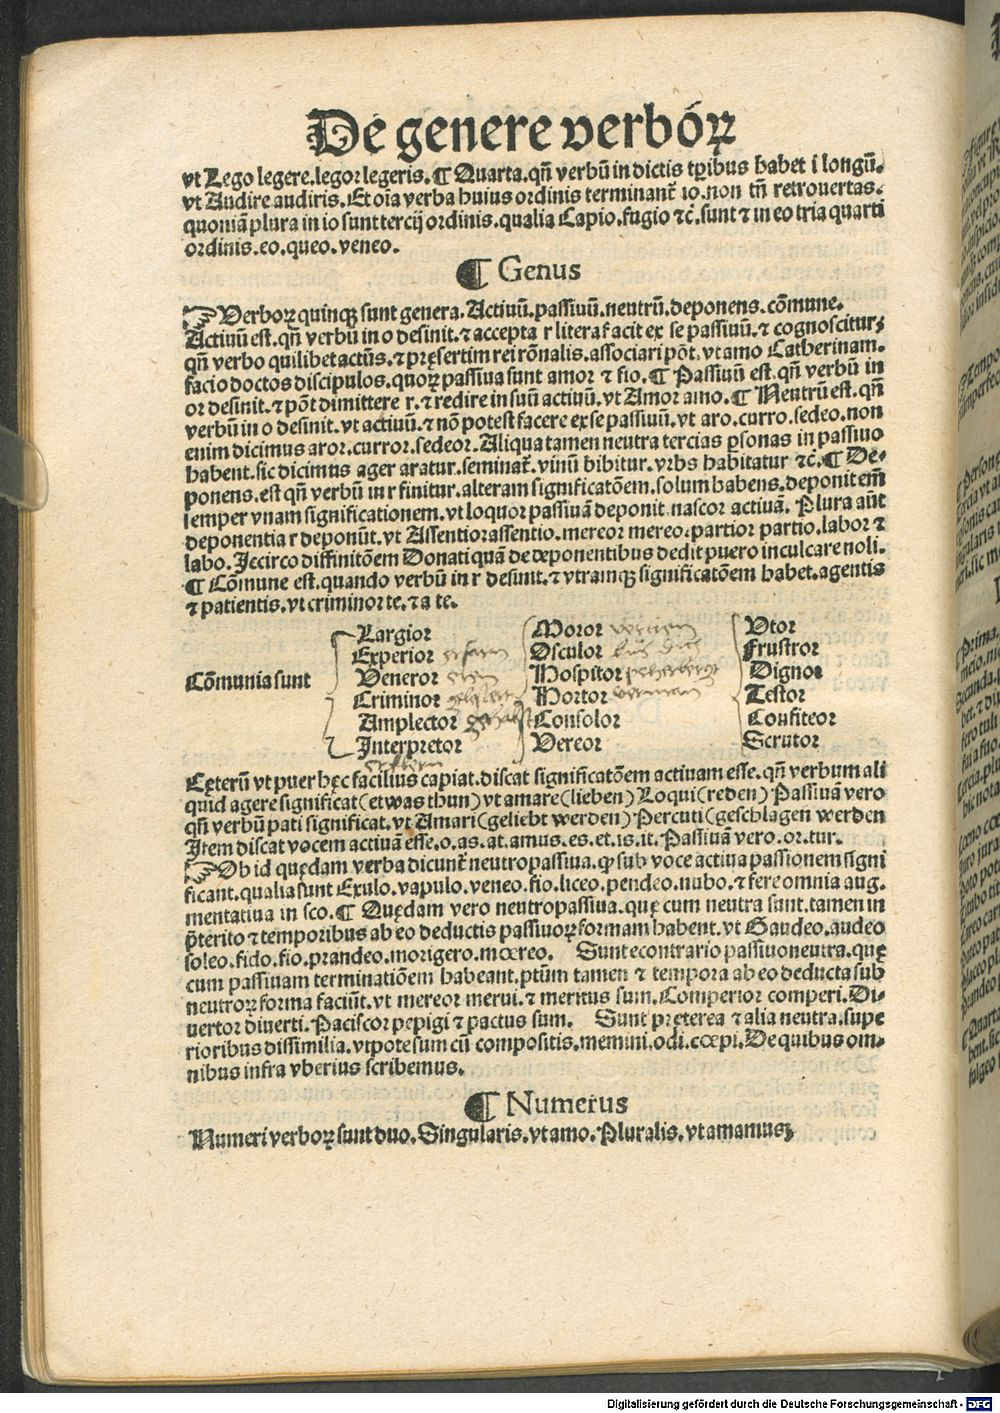 De genere verboꝝ
vt Lego legere.legor legeris.¶ Quarta.qñ verbū in dictis tꝑibus habet i longū.
vt Audire audiris. Et oīa verba huius ordinis terminant᷑ io.non tñ retrouertas.
quoniā plura in io sunt tercij ordinis.qualia Capio.fugio ⁊c̄.sunt ⁊ in eo tria quarti
ordinis.eo.queo.veneo.
¶ Genus
☞ Verboꝝ quinqꝫ sunt genera.Actiuū.passiuū.neutrū.deponens.cōmune.
Actiuū est.qñ verbū in o desinit.⁊ accepta r litera facit ex se passiuū.⁊ cognoscitur,
qñ verbo quilibet actūs.⁊ pręsertim rei rōnalis.associari pōt.vt amo Catherinam.
facio doctos discipulos.quoꝝ passiua sunt amor ⁊ fio.¶ Passiuū est.qñ verbū in
or desinit.⁊ pōt dimittere r.⁊ redire in suū actiuū.vt Amor amo.¶ Neutrū est.qñ
verbū in o desinit.vt actiuū.⁊ nō potest facere ex se passiuū.vt aro.curro.sedeo.non
enim dicimus aror.curror.sedeor.Aliqua tamen neutra tercias ꝑsonas in passiuo
habent.sic dicimus ager aratur.seminat᷑.vinū bibitur.vrbs habitatur ⁊c̄.¶ De-
ponens.est qñ verbū in r finitur.alteram significatōem.solum habens.deponit em̄
semper vnam significationem.vt loquor passiuā deponit.nascor actiuā. Plura aūt
deponentia r deponūt.vt Assentior assentio.mereor mereo.partior partio.labor ⁊
labo.Iccirco diffinitōem Donati quā de deponentibus dedit puero inculcare noli.
¶ Cōmune est.quando verbū in r desinit.⁊ vtramqꝫ significatōem habet.agentis
⁊ patientis.vt criminor te.⁊ a te.
Largior Moror Vtor
Experior Osculor Frustror
Cōmunia sunt Veneror Hospitor Dignor
Criminor Hortor Testor
Amplector Consolor Confiteor
Interpretor Vereor Scrutor
Cęterū vt puer hęc facilius capiat.discat significatōem actiuam esse.qñ verbum ali
quid agere significat(etwas thun)vt amare(lieben)Loqui(reden)Passiuā vero
qñ verbū pati significat.vt Amari(geliebt werden)Percuti(geschlagen werden
Item discat vocem actiuā esse.o.as.at.amus.es.et.is.it.Passiuā vero.or.tur.
☞ Ob id quędam verba dicunt᷑ neutropassiua.ꝙ sub voce actiua passionem signi
ficant.qualia sunt Exulo.vapulo.veneo.fio.liceo.pendeo.nubo.⁊ fere omnia aug.
mentatiua in sco.¶ Quędam vero neutropassiua.quę cum neutra sunt.tamen in
p̄terito ⁊ temporibus ab eo deductis passiuoꝝ formam habent.vt Gaudeo.audeo
soleo.fido.fio.prandeo.morigero.mœreo. Sunt econtrario passiuoneutra.quę
cum passiuam terminatiōem habeant.p̄tūm tamen ⁊ tempora ab eo deducta sub
neutroꝝ forma faciūt.vt mereor merui.⁊ meritus sum.Comperior comperi.Di-
uertor diuerti.Paciscor pepigi ⁊ pactus sum. Sunt pręterea ⁊ alia neutra.supe
rioribus dissimilia.vtpote sum cū compositis.memini.odi.cœpi.De quibus om-
nibus infra vberius scribemus.
¶ Numerus
Numeri verboꝝ sunt duo.Singularis.vt amo.Pluralis.vt amamus,
Digitalisierung gefördert durch die Deutsche Forschungsgemeinschaft - DFG